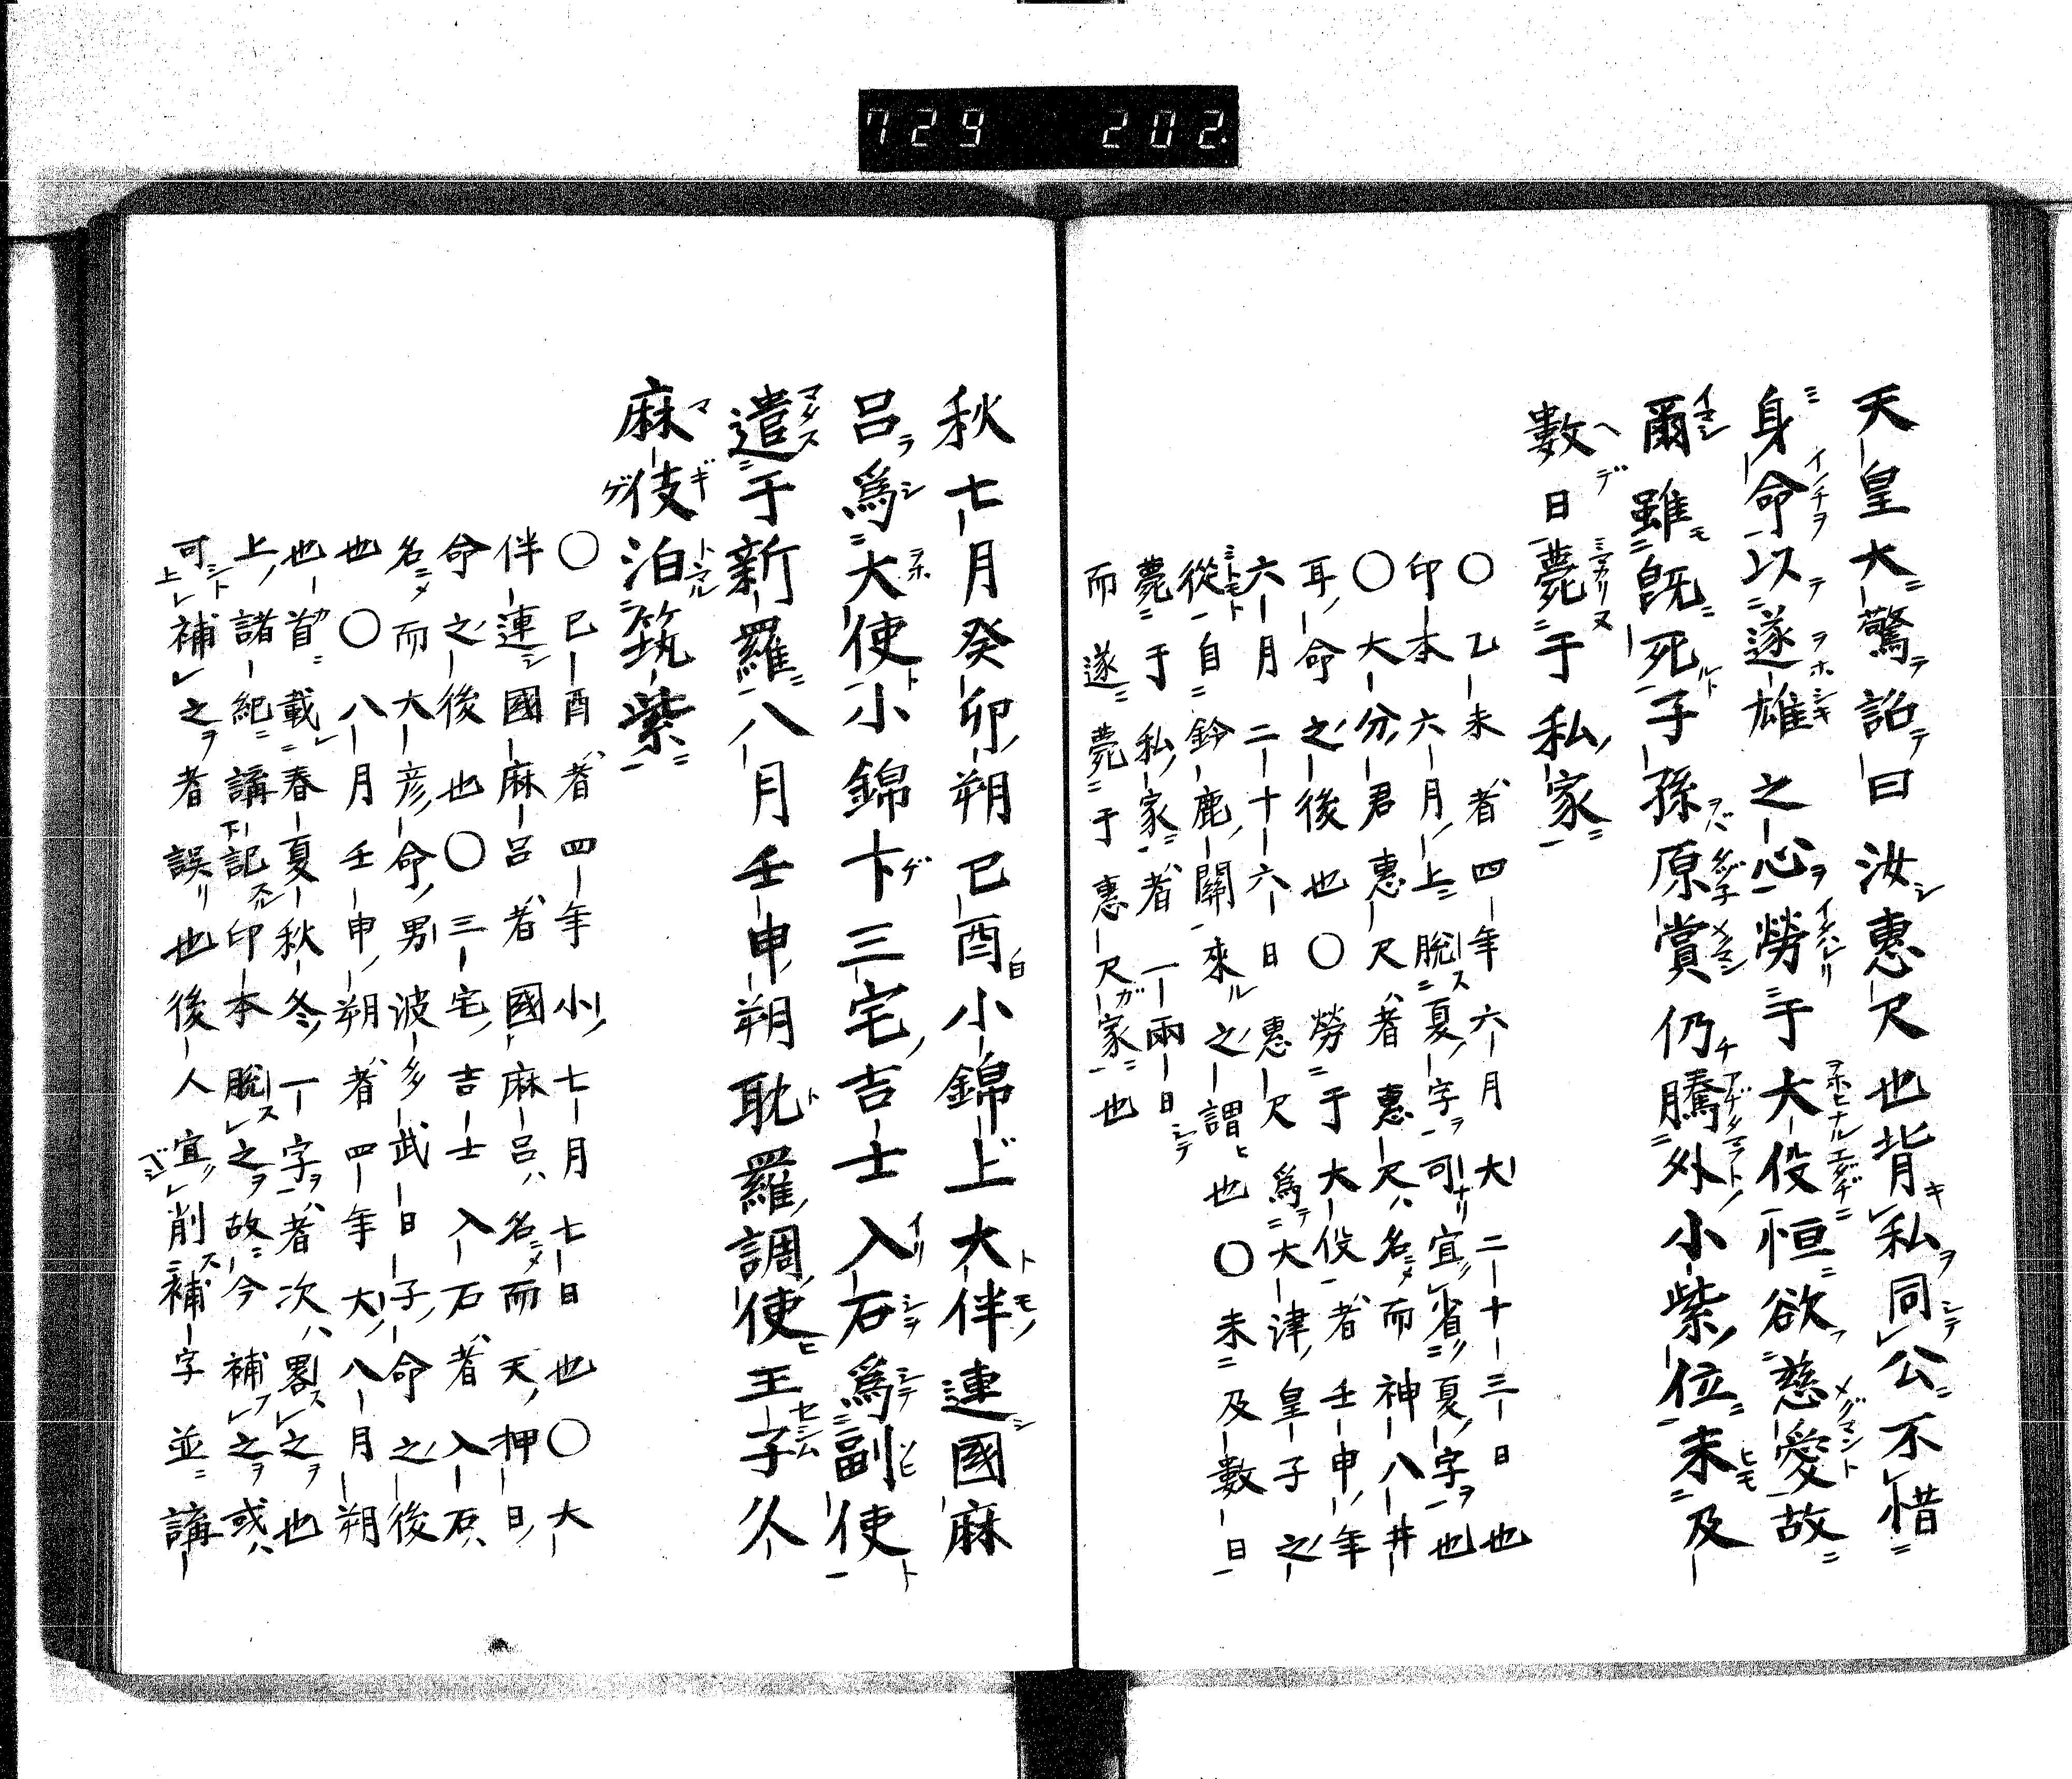 729 202.
天皇大驚詔曰汝惠尺也背私同公不惜
身命以遂雄之心勞于大役恒欲慈愛故
爾雖既死子孫原賞仍騰外小紫位未及
數日薨于私家
〇乙未者四年六月大二十三日也
印本六月上脫夏字可宜省夏字也
〇大分君惠尺者惠尺名而神八井
耳命之後也〇勞于大役者壬申年
六月二十六日惠尺爲大津皇子之
從自鈴鹿關來之謂也〇未及數日
薨于私家者一兩日
而遂薨于惠尺家也
秋七月癸卯朔己酉小錦上大伴連國麻
呂爲大使小錦下三宅吉士入石爲副使
遣于新羅八月壬申朔耽羅調使王子久
麻伎泊筑紫
〇己酉者四年小七月七日也〇大
伴連國麻呂者國麻呂名而天押日
命之後也〇三宅吉士入石者入石
名而大彦命男波多武日子命之後
也〇八月壬申朔者四年大八月朔
也首載春夏秋冬一字者次畧之也
上諸紀講記印本脫之故今補之或
可補之者誤也後人宜削補字並講